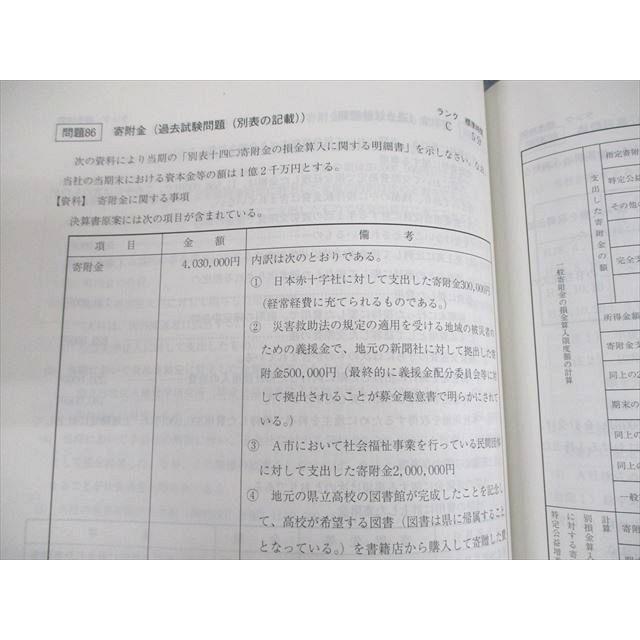 問題86 寄附金（過去試験問題（別表の記載））
ランク
C 5分
次の資料により当期の「別表十四㈡寄附金の損金算入に関する明細書」を示しなさい。なお、
当社の当期末における資本金等の額は１億２千万円とする。
【資料】 寄附金に関する事項
決算書原案には次の項目が含まれている。
項 目 金 額 備 考
寄附金 4,030,000円 内訳は次のとおりである。
① 日本赤十字社に対して支出した寄附金300,000円
（経常経費に充てられるものである。）
② 災害救助法の規定の適用を受ける地域の被災者の
ための義援金で、地元の新聞社に対して拠出した寄
附金500,000円（最終的に義援金配分委員会等に対
して拠出されることが募金趣意書で明らかにされて
いる。）
③ Ａ市において社会福祉事業を行っている民間団体
に対して支出した寄附金2,000,000円
④ 地元の県立高校の図書館が完成したことを記念し
て、高校が希望する図書（図書は県に帰属すること
となっている。）を書籍店から購入して寄贈した費
支出した寄附金の額
指定寄附
特定公益
その他の
完全支
一般寄附金の損金算入限度額の計算
所得金額
寄附金支
同上の
期末の
同上の
同上の
一般